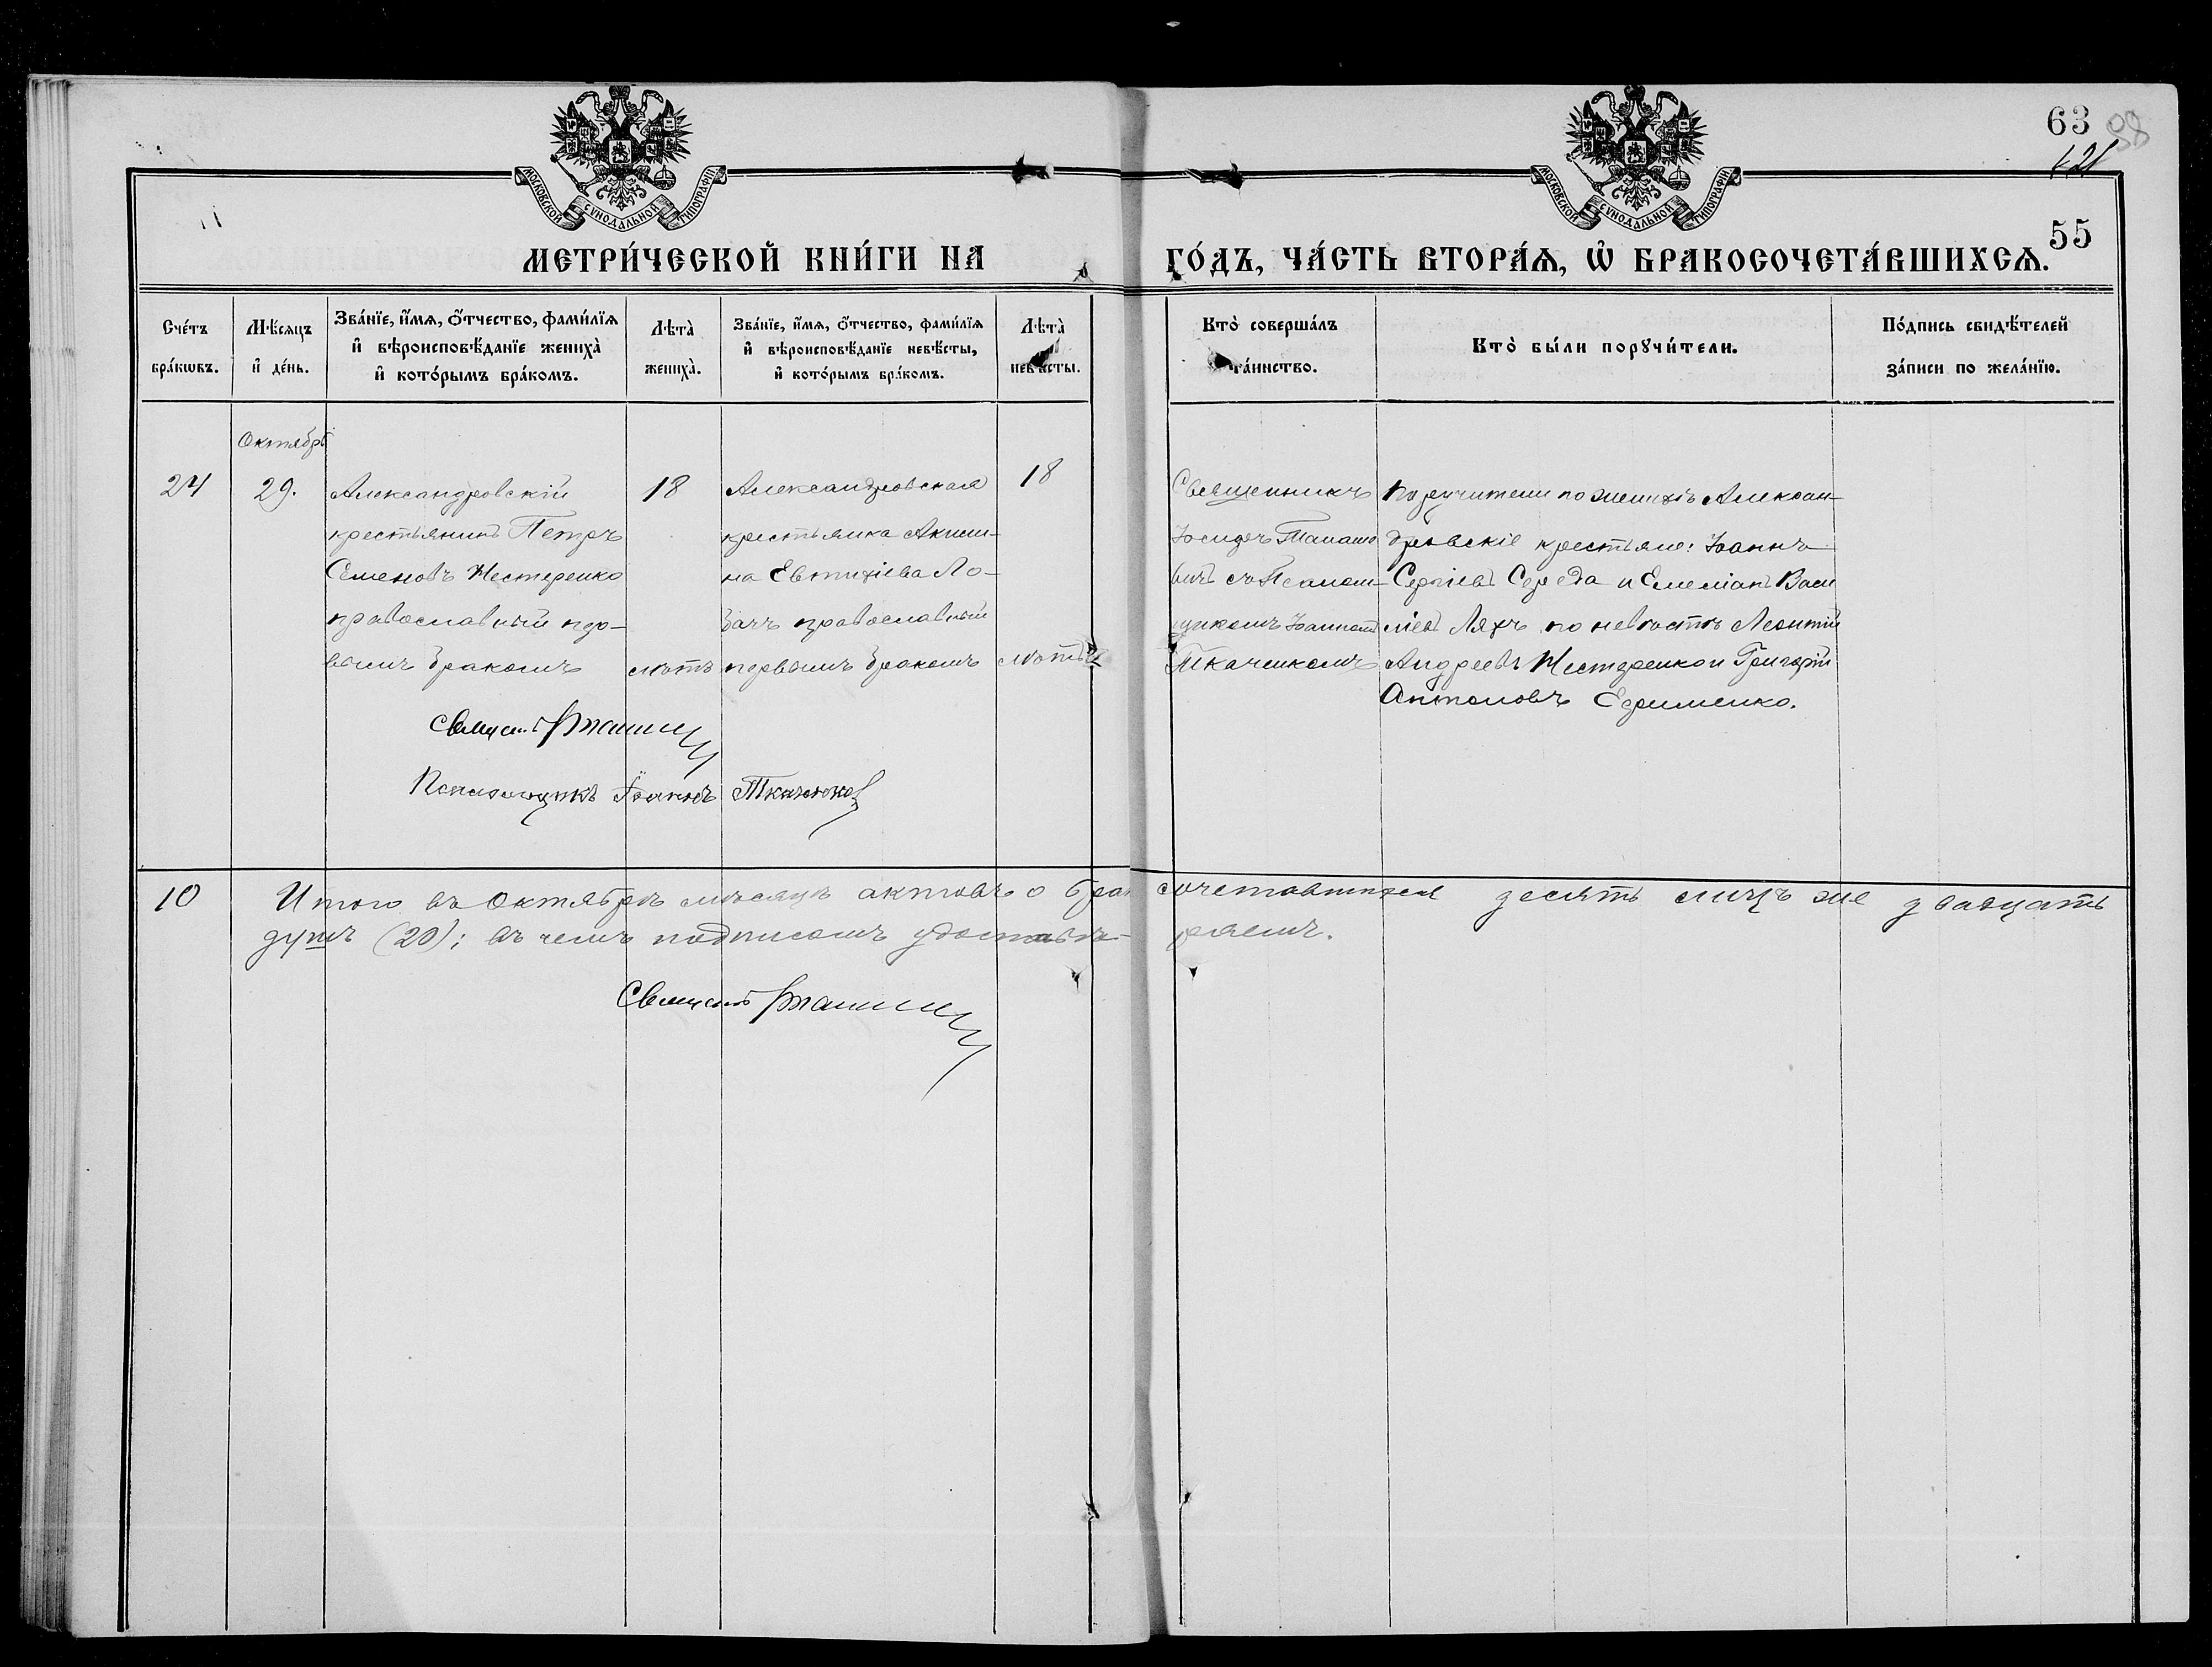 63 88
421
МОСКОВСКОЙ СѴНОДАЛЬНОЙ ТИПОГРАФІИ
МОСКОВСКОЙ СѴНОДАЛЬНОЙ ТИПОГРАФІИ
55
МЕТРИ́ЧЕСКОЙ КНИ́ГИ НА
ГО́ДЪ, ЧА́СТЬ ВТОРА́Ѧ, Ѡ҆ БРАКОСОЧЕТА́ВШИХСѦ.
Сче́тъ
бра́кѡвъ.
Мѣ́сяцъ
и҆ де́нь.
Зва́нїе, и҆́мѧ, ѻ҆́тчество, фами́лїѧ
и҆ вѣроисповѣ́данїе жениха̀
и҆ кото́рымъ бра́комъ.
Лѣта̀
жениха̀.
Зва́нїе, и҆́мѧ, ѻ҆́тчество, фами́лїѧ
и҆ вѣроисповѣ́данїе невѣ́сты,
и҆ кото́рымъ бра́комъ.
Лѣта̀
невѣ́сты.
Кто̀ соверша́лъ
та́инство.
Кто̀ бы́ли порꙋчи́тели.
По́дпись свидѣ́телей
за́писи по жела́нїю.
Октябрь
24
29.
Александровскій
крестьянинъ Петръ
Семеновъ Нестеренко
православный пер-
вымъ бракомъ
18
лѣтъ
Александровская
крестьянка Акили-
на Евтихіева Ло-
бачъ православный
первымъ бракомъ
18
лѣтъ
Священникъ
Іосифъ Танаше
вичъ съ Псалом-
щикомъ Іоанномъ
Ткаченкомъ
Поручители по женихѣ Алексан-
дровскіе крестьяне: Іоаннъ
Сергіевъ Середа и Емеліанъ Васи
ліевъ Ляхъ по невѣстѣ Леонтій
Андреевъ Нестеренко и Григорій
Антоновъ Ефименко.
Псаломщикъ Іоаннъ Ткаченко
10
Итого въ Октябрѣ мѣсяцѣ актовъ о бракосочетавшихся десять лицъ же двадцать
душъ (20); въ чемъ подписомъ удостовѣ-ряемъ.